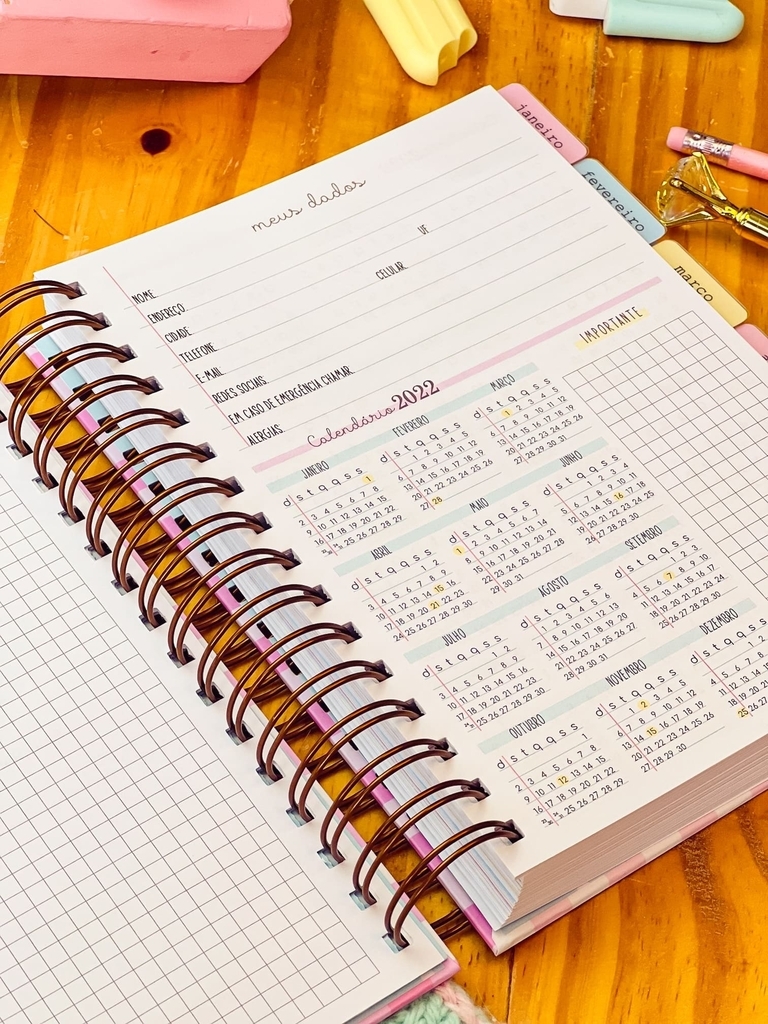 janeiro
fevereiro
março
meus dados
NOME
ENDEREÇO
CIDADE UF
TELEFONE CELULAR
E-MAIL
REDES SOCIAIS
EM CASO DE EMERGÊNCIA CHAMAR
ALERGIAS
Calendário 2022
IMPORTANTE
JANEIRO
d s t q q s s
1
2 3 4 5 6 7 8
9 10 11 12 13 14 15
16 17 18 19 20 21 22
25 26 27 28 29
FEVEREIRO
d s t q q s s
1 2 3 4 5
6 7 8 9 10 11 12
13 14 15 16 17 18 19
20 21 22 23 24 25 26
27 28
MARÇO
d s t q q s s
1 2 3 4 5
6 7 8 9 10 11 12
13 14 15 16 17 18 19
20 21 22 23 24 25 26
27 28 29 30 31
ABRIL
d s t q q s s
1 2
3 4 5 6 7 8 9
10 11 12 13 14 15 16
17 18 19 20 21 22 23
24 25 26 27 28 29 30
MAIO
d s t q q s s
1 2 3 4 5 6 7
8 9 10 11 12 13 14
15 16 17 18 19 20 21
22 23 24 25 26 27 28
29 30 31
JUNHO
d s t q q s s
1 2 3 4
5 6 7 8 9 10 11
12 13 14 15 16 17 18
19 20 21 22 23 24 25
26 27 28 29 30
JULHO
d s t q q s s
1 2
3 4 5 6 7 8 9
10 11 12 13 14 15 16
17 18 19 20 21 22 23
25 26 27 28 29 30
AGOSTO
d s t q q s s
1 2 3 4 5 6
7 8 9 10 11 12 13
14 15 16 17 18 19 20
21 22 23 24 25 26 27
28 29 30 31
SETEMBRO
d s t q q s s
1 2 3
4 5 6 7 8 9 10
11 12 13 14 15 16 17
18 19 20 21 22 23 24
25 26 27 28 29 30
OUTUBRO
d s t q q s s
1
2 3 4 5 6 7 8
9 10 11 12 13 14 15
16 17 18 19 20 21 22
25 26 27 28 29
NOVEMBRO
d s t q q s s
1 2 3 4 5
6 7 8 9 10 11 12
13 14 15 16 17 18 19
20 21 22 23 24 25 26
27 28 29 30
DEZEMBRO
d s t q q s s
1 2
4 5 6 7 8 9
11 12 13 14 15
18 19 20 21 22
25 26 27 28